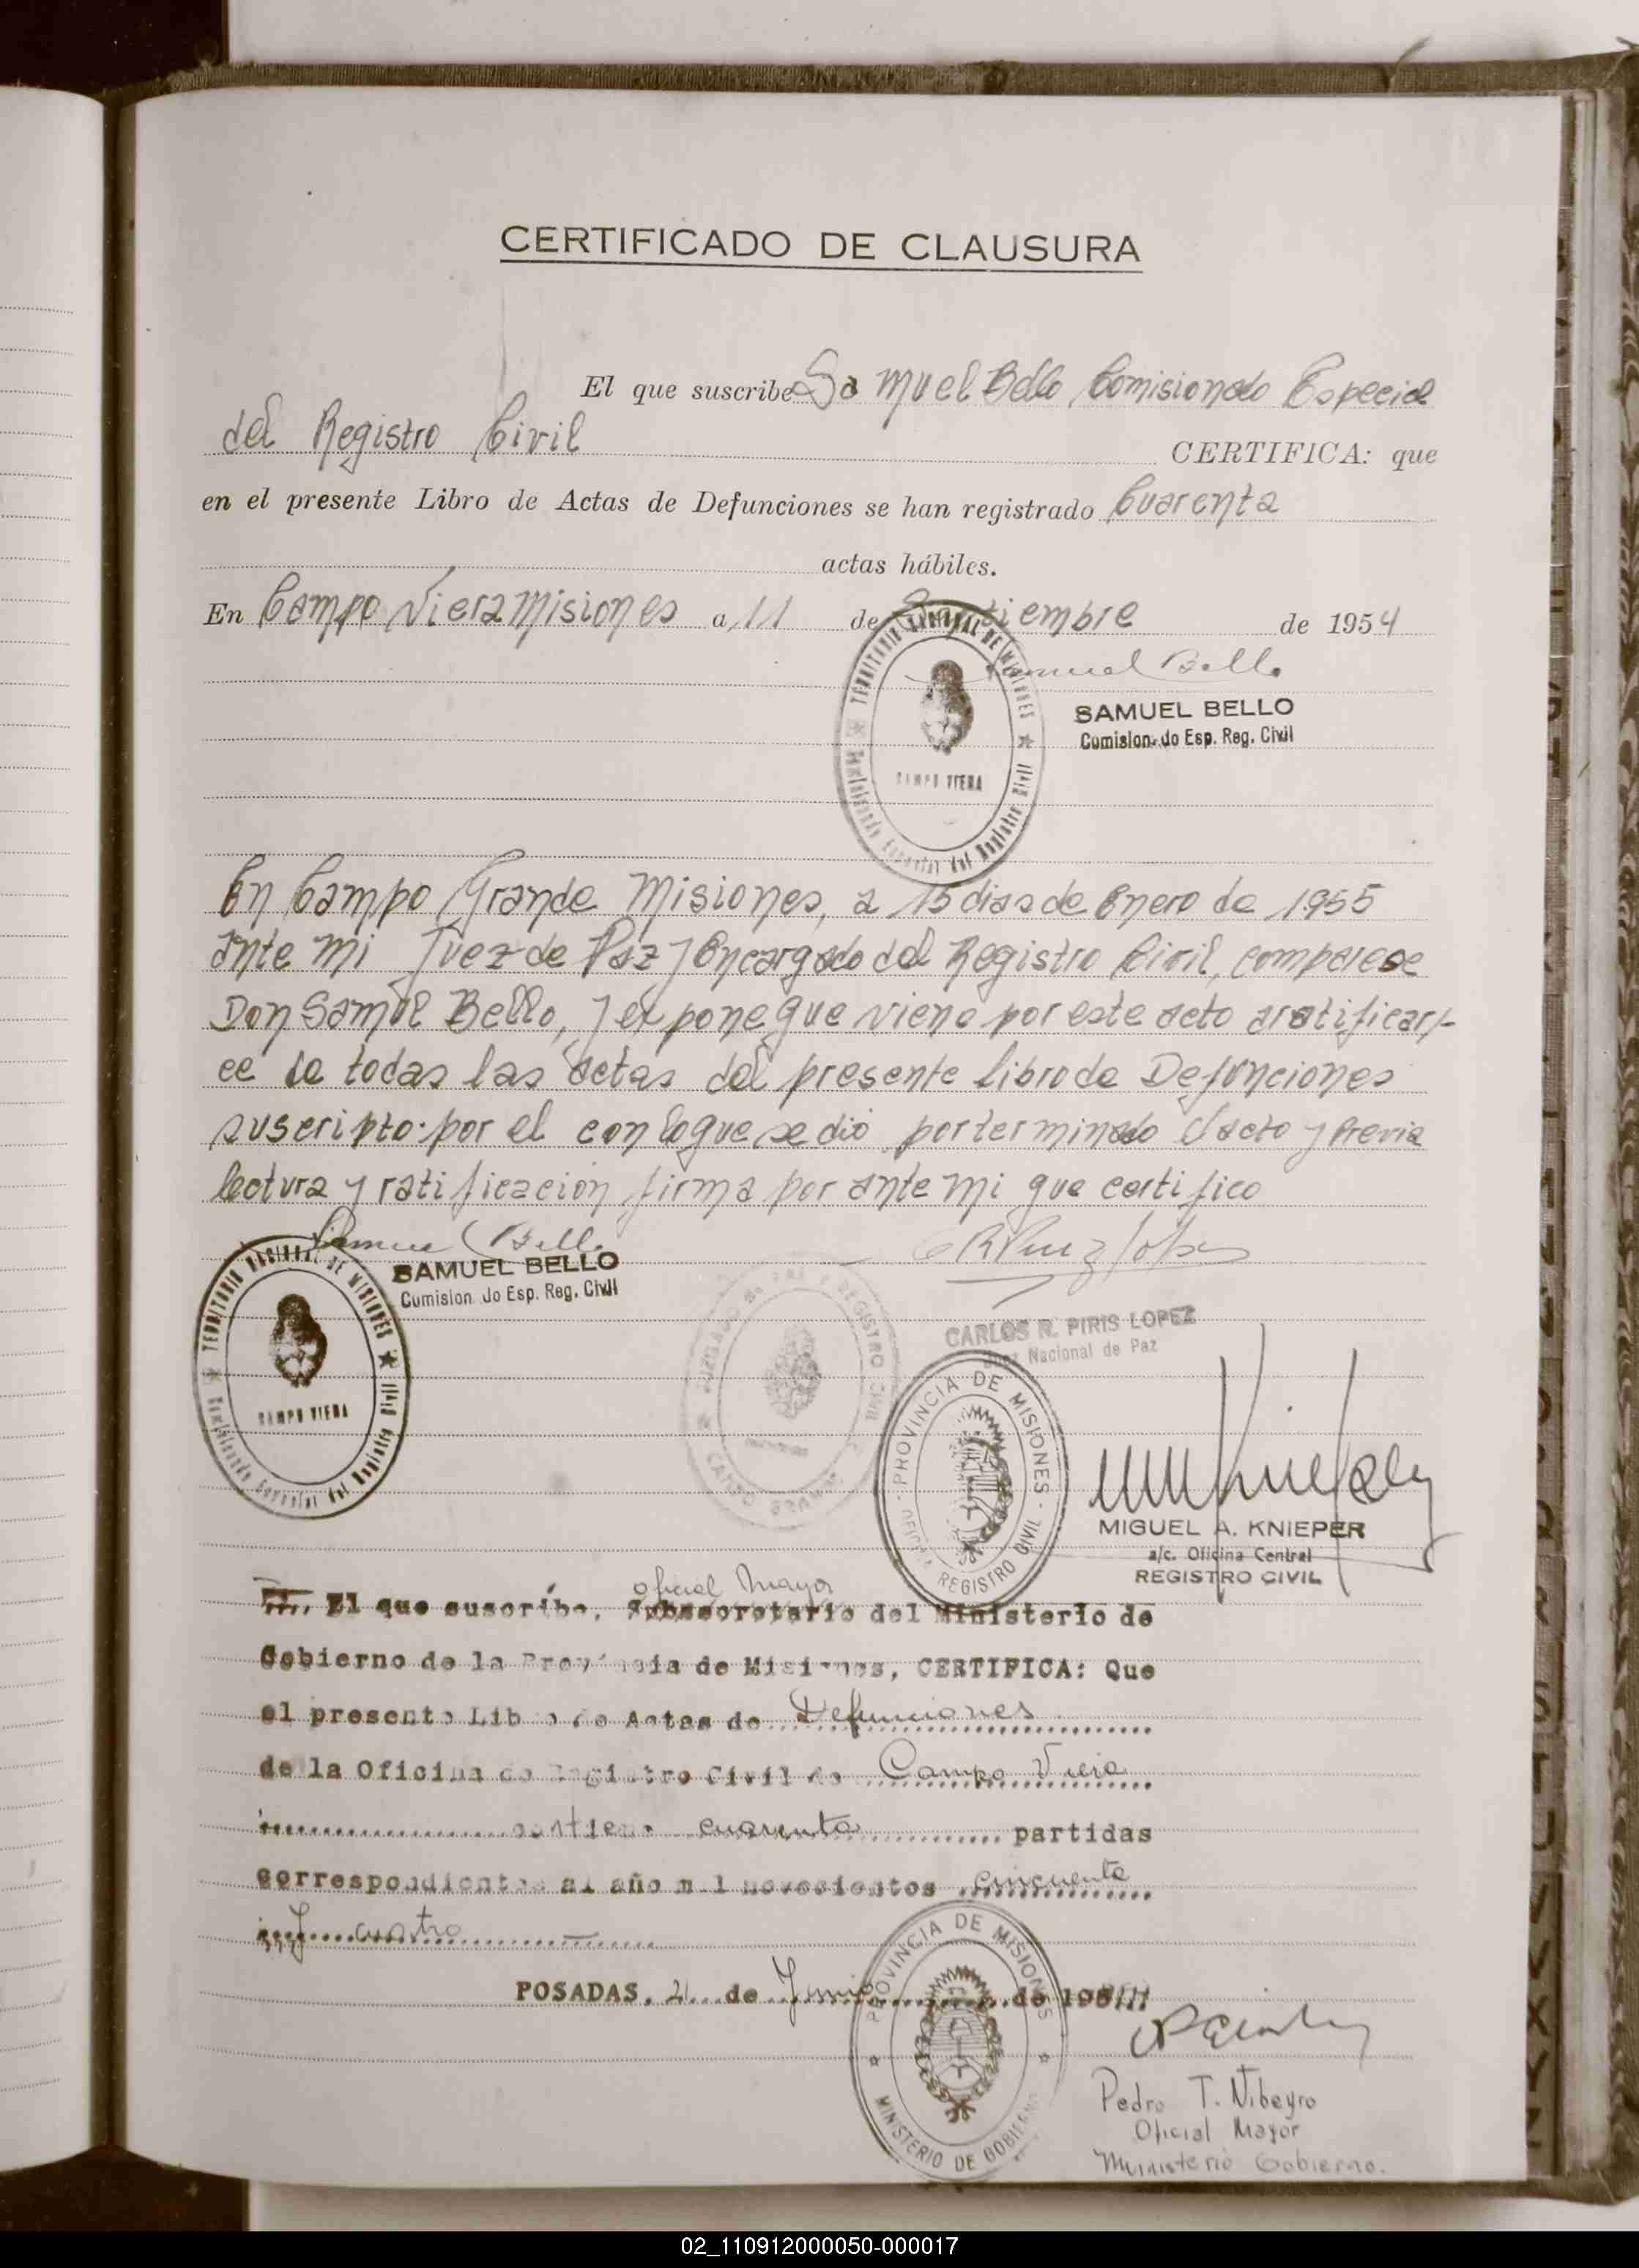 CERTIFICADO DE CLAUSURA
El que suscribe Samuel Bello Comisionado Especial
del Registro Civil CERTIFICA: que
en el presente Libro de Actas de Defunciones se han registrado Cuarenta
actas hábiles.
En Campo Viera Misiones a 11 de Septiembre de 1954
Samuel Bello
SAMUEL BELLO
Comision. do Esp. Reg. Civil
TERRITORIO NACIONAL DE MISIONES
CAMPO VIERA
Comisionado Especial del Registro Civil
En Campo Grande Misiones, a 15 dias de Enero de 1955
ante mi Juez de Paz y Encargado del Registro Civil, comparece
Don Samuel Bello, y expone que viene por este acto a ratificar
se de todas las actas del presente libro de Defunciones
suscripto por el con lo que se dió por terminado el acto y previa
lectura y ratificación firma por ante mi que certifico
Samuel Bello
SAMUEL BELLO
Comision. do Esp. Reg. Civil
TERRITORIO NACIONAL DE MISIONES
CAMPO VIERA
Comisionado Especial del Registro Civil
JUZGADO DE PAZ Y REGISTRO CIVIL
CAMPO GRANDE
CARLOS R. PIRIS LOPEZ
Juez Nacional de Paz
PROVINCIA DE MISIONES
OFICINA REGISTRO CIVIL
MIGUEL A. KNIEPER
a/c. Oficina Central
REGISTRO CIVIL
oficial Mayor
El que suscribe, Subsecretario del Ministerio de
Gobierno de la Provincia de Misiones, CERTIFICA: Que
el presente Libro de Actas de Defunciones
de la Oficina de Registro Civil de Campo Viera
contiene cuarenta partidas
correspondientes al año mil novecientos cincuenta
y cuatro
POSADAS, 21 de Junio de 195
PROVINCIA DE MISIONES
MINISTERIO DE GOBIERNO
Pedro T. Nibeyro
Oficial Mayor
Ministerio Gobierno.
02_110912000050-000017